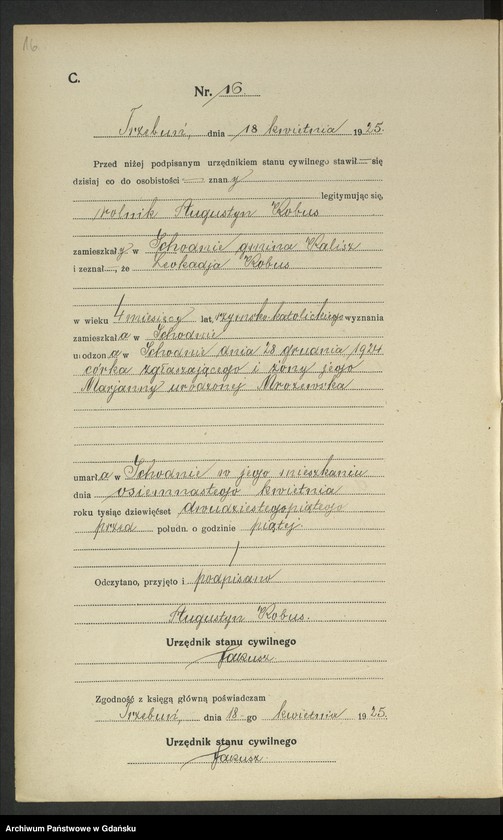 16.
C.
Nr. 16.
Trzebuń, dnia 18 kwietnia 1925.
Przed niżej podpisanym urzędnikiem stanu cywilnego stawił się
dzisiaj co do osobistości znany
legitymując się,
rolnik Augustyn Kobus
zamieszkały w Schodnie gmina Kalisz
i zeznał...., że Leokadja Kobus
w wieku 4 miesięcy lat, rzymsko-katolickiego wyznania
zamieszkała w Schodnie
urodzona w Schodnie dnia 28 grudnia 1924
córka zgłaszającego i żony jego
Marjanny urodzonej Mrozewska
umarła w Schodnie w jego mieszkaniu
dnia osiemnastego kwietnia
roku tysiąc dziewięćset dwudziestegopiątego
przed połudn. o godzinie piątej
Odczytano, przyjęto i podpisano
Augustyn Kobus.
Urzędnik stanu cywilnego
Zgodność z księgą główną poświadczam
Trzebuń, dnia 18-go kwietnia 1925.
Urzędnik stanu cywilnego
Archiwum Państwowe w Gdańsku